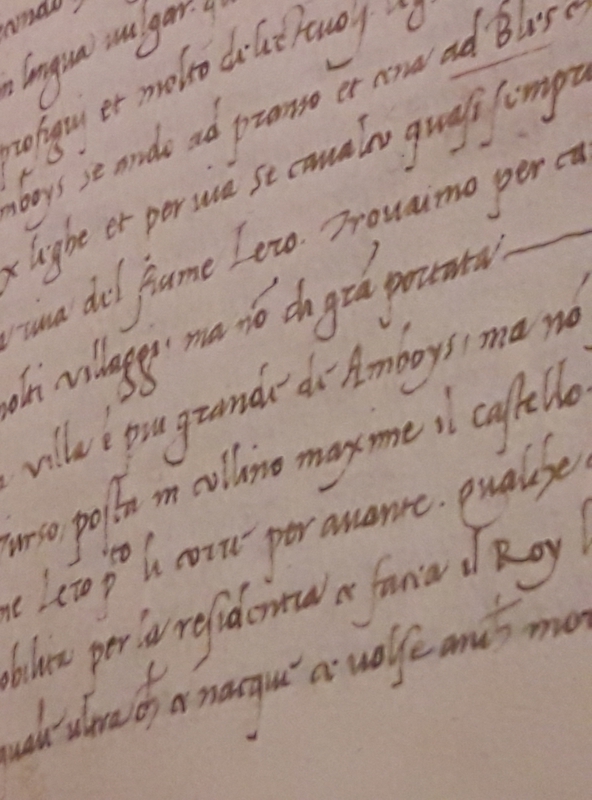 in lengua vulgar.
profiqui et molto delectevoli.
mboys se ando ad pranso et cena ad Bles
x lighe et per via se cavalco quasi sempre
riva del fiume Lero. Trovaimo per ca
molti villaggi, ma nõ di grã portata
villa é piu grande de Amboys, ma nõ
urso, posta in collino maxime il castello.
me Lero pto li corre per avante. qualche
obilita per la residentia ce facia il Roy
quale ultra ce nacque ce volse anch mor